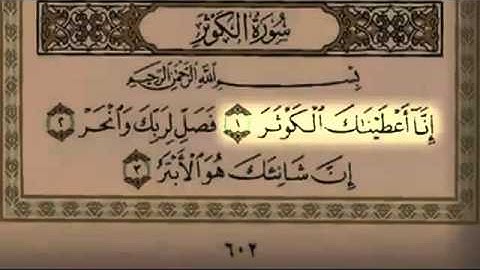 سُورَةُ الكَوْثَرِ
بِسْمِ ٱللَّهِ ٱلرَّحْمَٰنِ ٱلرَّحِيمِ
إِنَّآ أَعْطَيْنَٰكَ ٱلْكَوْثَرَ ١ فَصَلِّ لِرَبِّكَ وَٱنْحَرْ ٢
إِنَّ شَانِئَكَ هُوَ ٱلْأَبْتَرُ ٣
٦٠٢